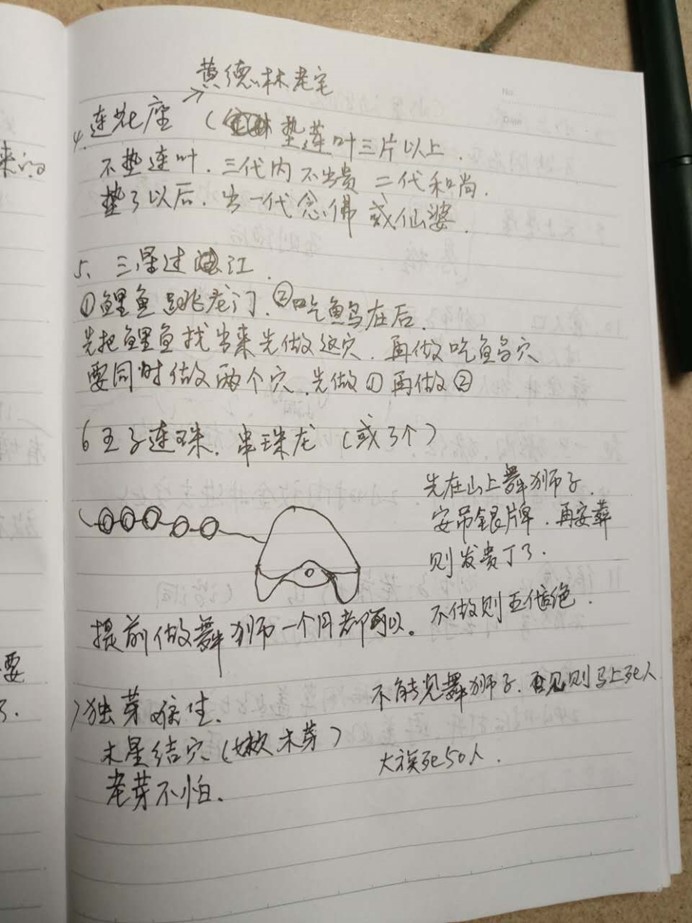 黄德林老宅
4.莲花座 (垫莲叶三片以上.
不垫连叶.三代内不出贵 二代和尚.
垫了以后.出一代念佛或仙婆.
5、三星过江.
①鲤鱼跳龙门.②吃鱼鸟在后.
先把鲤鱼找出来先做这穴.再做吃鱼鸟穴
要同时做两个穴.先做①再做②
6 王子连珠.串珠龙 (或了个)
先在山上舞狮子.
安吊銀牌.再安葬
则发贵丁了.
提前做舞狮一个月都可以。不做则五
绝.
7独芽.
不能见舞狮子.见则马上死人
木星结穴(嫩木芽)
大族死50人.
老芽不怕.
来的
要